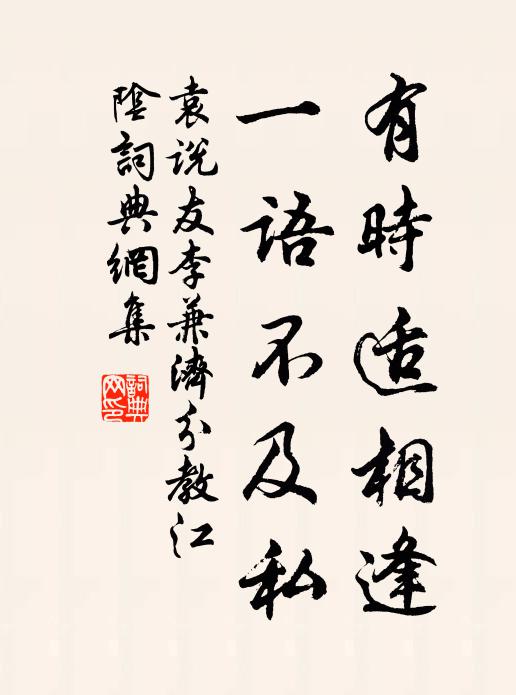 有時适相逢
一語不及私
袁说友李兼濟分教江
陰詞典網集
詞典网印